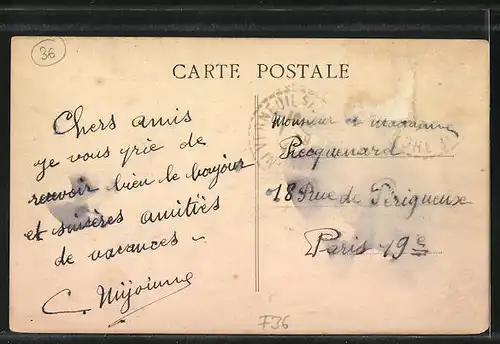 36
CARTE POSTALE
Chers amis
je vous prie de
recevoir bien le bonjour
et sincères amitiés
de vacances -
Monsieur et madame
Picquenard
18 Rue de Périgueux
Paris 19e
F36